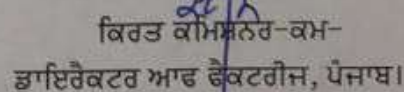 ਕਿਰਤ ਕਮਿਸ਼ਨਰ-ਕਮ-
ਡਾਇਰੈਕਟਰ ਆਫ ਫੈਕਟਰੀਜ, ਪੰਜਾਬ।